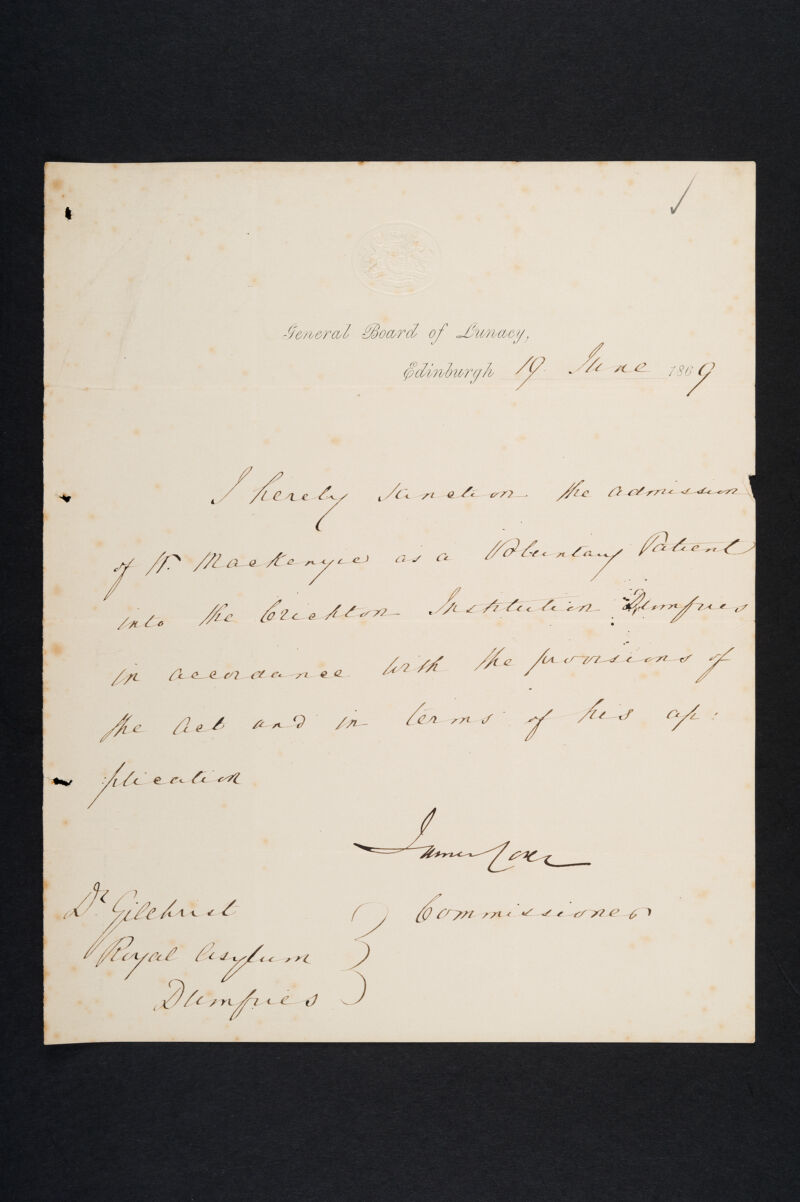 General Board of Lunacy,
Edinburgh 19 June 1869
I hereby sanction the admission
of W. Mackenzie as a Voluntary Patient
into the Crichton Institution Dumfries
in accordance with the provisions of
the Act and in terms of his ap:
:plication
James Coxe
Commissioner
Dr. Gilchrist
Royal Asylum
Dumfries